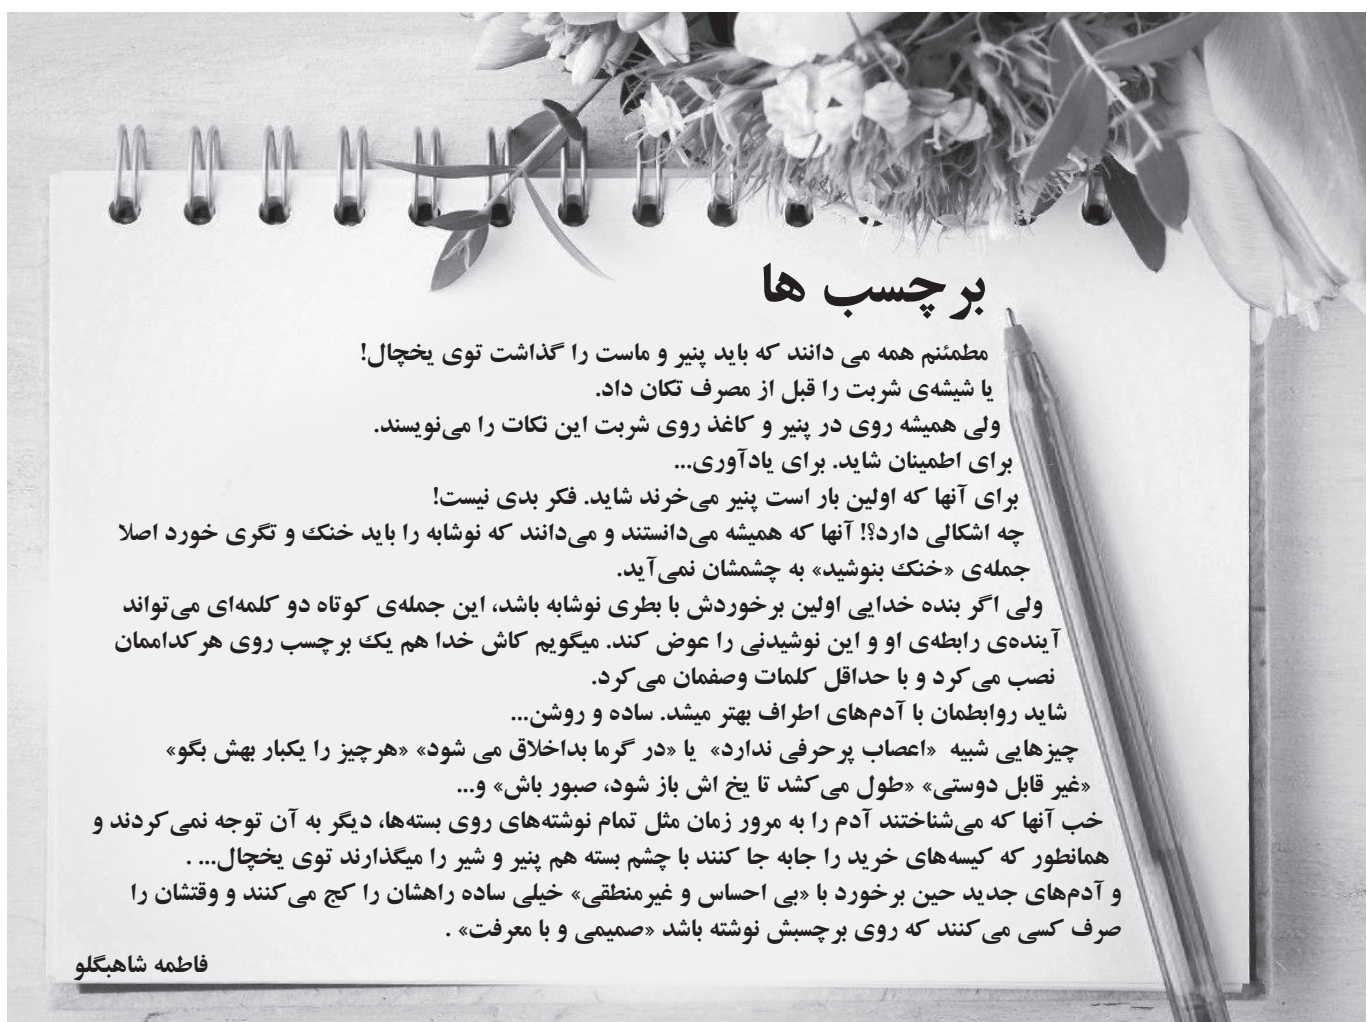 برچسب ها
مطمئنم همه می دانند که باید پنیر و ماست را گذاشت توی یخچال!
یا شیشه‌ی شربت را قبل از مصرف تکان داد.
ولی همیشه روی در پنیر و کاغذ روی شربت این نکات را می‌نویسند.
برای اطمینان شاید. برای یادآوری...
برای آنها که اولین بار است پنیر می‌خرند شاید. فکر بدی نیست!
چه اشکالی دارد؟! آنها که همیشه می‌دانستند و می‌دانند که نوشابه را باید خنک و تگری خورد اصلا
جمله‌ی «خنک بنوشید» به چشمشان نمی‌آید.
ولی اگر بنده خدایی اولین برخوردش با بطری نوشابه باشد، این جمله‌ی کوتاه دو کلمه‌ای می‌تواند
آینده‌ی رابطه‌ی او و این نوشیدنی را عوض کند. میگویم کاش خدا هم یک برچسب روی هرکداممان
نصب می‌کرد و با حداقل کلمات وصفمان می‌کرد.
شاید روابطمان با آدم‌های اطراف بهتر میشد. ساده و روشن...
چیزهایی شبیه «اعصاب پرحرفی ندارد» یا «در گرما بداخلاق می شود» «هرچیز را یکبار بهش بگو»
«غیر قابل دوستی» «طول می‌کشد تا یخ اش باز شود، صبور باش» و...
خب آنها که می‌شناختند آدم را به مرور زمان مثل تمام نوشته‌های روی بسته‌ها، دیگر به آن توجه نمی‌کردند و
همانطور که کیسه‌های خرید را جابه جا کنند با چشم بسته هم پنیر و شیر را میگذارند توی یخچال... .
و آدم‌های جدید حین برخورد با «بی احساس و غیرمنطقی» خیلی ساده راهشان را کج می‌کنند و وقتشان را
صرف کسی می‌کنند که روی برچسبش نوشته باشد «صمیمی و با معرفت» .
فاطمه شاهبگلو